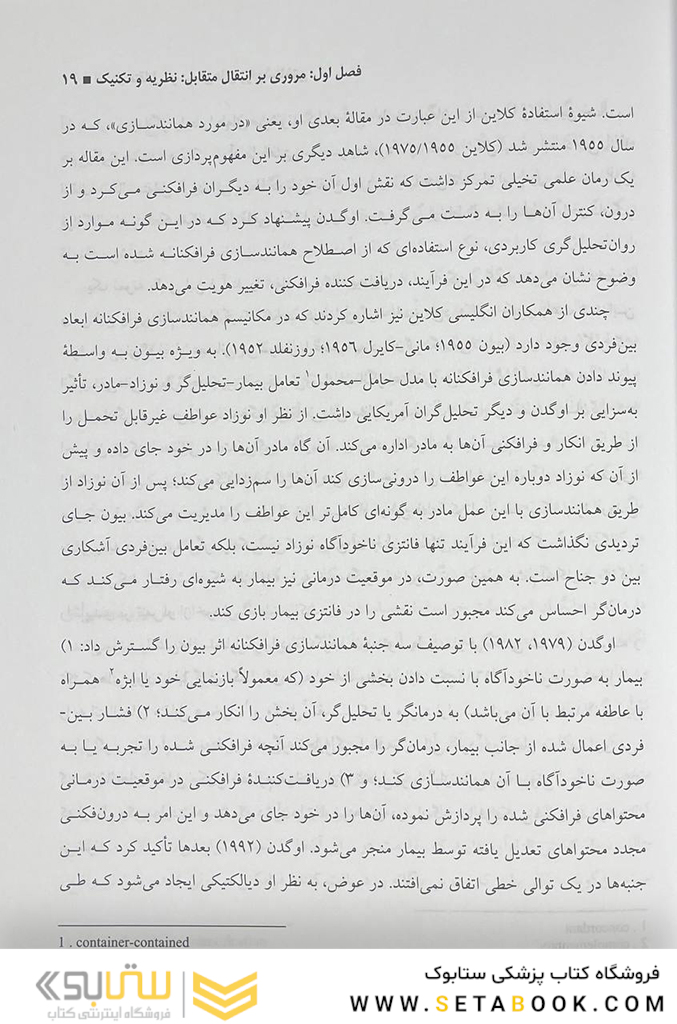 فصل اول: مروری بر انتقال متقابل: نظریه و تکنیک ■ ۱۹
است. شیوۀ استفادۀ کلاین از این عبارت در مقالۀ بعدی او، یعنی «در مورد همانندسازی»، که در
سال ۱۹۵۵ منتشر شد (کلاین ۱۹۷۵/۱۹۵۵)، شاهد دیگری بر این مفهوم‌پردازی است. این مقاله بر
یک رمان علمی تخیلی تمرکز داشت که نقش اول آن خود را به دیگران فرافکنی می‌کرد و از
درون، کنترل آن‌ها را به دست می‌گرفت. اوگدن پیشنهاد کرد که در این گونه موارد از
روان‌تحلیل‌گری کاربردی، نوع استفاده‌ای که از اصطلاح همانندسازی فرافکنانه شده است به
وضوح نشان می‌دهد که در این فرآیند، دریافت کننده فرافکنی، تغییر هویت می‌دهد.
چندی از همکاران انگلیسی کلاین نیز اشاره کردند که در مکانیسم همانندسازی فرافکنانه ابعاد
بین‌فردی وجود دارد (بیون ۱۹۵۵؛ مانی-کایرل ۱۹۵۶؛ روزنفلد ۱۹۵۲). به ویژه بیون به واسطۀ
پیوند دادن همانندسازی فرافکنانه با مدل حامل-محمول۱ تعامل بیمار-تحلیل‌گر و نوزاد-مادر، تأثیر
به‌سزایی بر اوگدن و دیگر تحلیل‌گران آمریکایی داشت. از نظر او نوزاد عواطف غیرقابل تحمل را
از طریق انکار و فرافکنی آن‌ها به مادر اداره می‌کند. آن گاه مادر آن‌ها را در خود جای داده و پیش
از آن که نوزاد دوباره این عواطف را درونی‌سازی کند آن‌ها را سم‌زدایی می‌کند؛ پس از آن نوزاد از
طریق همانندسازی با این عمل مادر به گونه‌ای کامل‌تر این عواطف را مدیریت می‌کند. بیون جای
تردیدی نگذاشت که این فرآیند تنها فانتزی ناخودآگاه نوزاد نیست، بلکه تعامل بین‌فردی آشکاری
بین دو جناح است. به همین صورت، در موقعیت درمانی نیز بیمار به شیوه‌ای رفتار می‌کند که
درمان‌گر احساس می‌کند مجبور است نقشی را در فانتزی بیمار بازی کند.
اوگدن (۱۹۷۹، ۱۹۸۲) با توصیف سه جنبۀ همانندسازی فرافکنانه اثر بیون را گسترش داد: ۱)
بیمار به صورت ناخودآگاه با نسبت دادن بخشی از خود (که معمولاً بازنمایی خود یا ابژه۲ همراه
با عاطفه مرتبط با آن می‌باشد) به درمانگر یا تحلیل‌گر، آن بخش را انکار می‌کند؛ ۲) فشار بین-
فردی اعمال شده از جانب بیمار، درمان‌گر را مجبور می‌کند آنچه فرافکنی شده را تجربه یا به
صورت ناخودآگاه با آن همانندسازی کند؛ و ۳) دریافت‌کنندۀ فرافکنی در موقعیت درمانی
محتواهای فرافکنی شده را پردازش نموده، آن‌ها را در خود جای می‌دهد و این امر به درون‌فکنی
مجدد محتواهای تعدیل یافته توسط بیمار منجر می‌شود. اوگدن (۱۹۹۲) بعدها تأکید کرد که این
جنبه‌ها در یک توالی خطی اتفاق نمی‌افتند. در عوض، به نظر او دیالکتیکی ایجاد می‌شود که طی
1 . container-contained
فروشگاه کتاب پزشکی ستابوک
WWW.SETABOOK.COM
ستابوک
فروشگاه اینترنتی کتاب